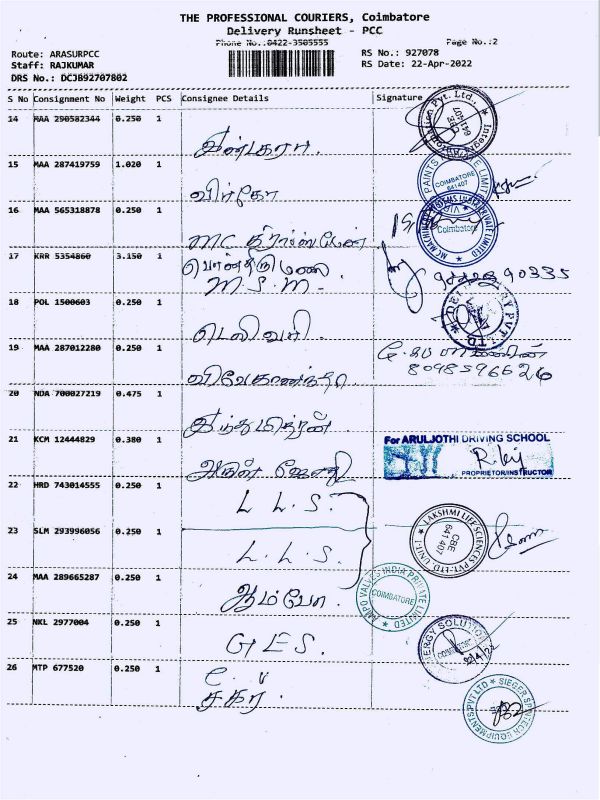 THE PROFESSIONAL COURIERS, Coimbatore
Delivery Runsheet - PCC
Phone No.:0422-3505555
Page No.:2
Route: ARASURPCC
RS No.: 927078
Staff: RAJKUMAR
RS Date: 22-Apr-2022
DRS No.: DCJB92707802
S No Consignment No Weight PCS Consignee Details Signature
14 MAA 290582344 0.250 1
CBE 641 407
15 MAA 287419759 1.020 1
PAINTS LIMITED
COIMBATORE 641407
16 MAA 565318878 0.250 1
MC MACHINERY SYSTEMS INDIA PRIVATE LIMITED
Coimbatore
17 KRR 5354860 3.150 1 பொன்திருமலை
M.S.M.
18 POL 1500603 0.250 1 டெலிவரி
PVT LTD
19 MAA 287012280 0.250 1 விவேகானந்தா
20 NDA 700027219 0.475 1
21 KCM 12444829 0.380 1 அருள் ஜோதி
For ARULJOTHI DRIVING SCHOOL
PROPRIETOR/INSTRUCTOR
22 HRD 743014555 0.250 1 L.L.S.
23 SLM 293996056 0.250 1 L.L.S.
LAKSHMI LIFE SCIENCES PVT. LTD. UNIT-I
CBE 641 407
24 MAA 289665287 0.250 1 ஆம்போ.
AMPO VALVES INDIA PRIVATE LIMITED
COIMBATORE
25 NKL 2977004 0.250 1 G.E.S.
ENERGY SOLUTION
COIMBATORE
26 MTP 677520 0.250 1
SIEGER SPINTECH EQUIPMENTS PVT LTD